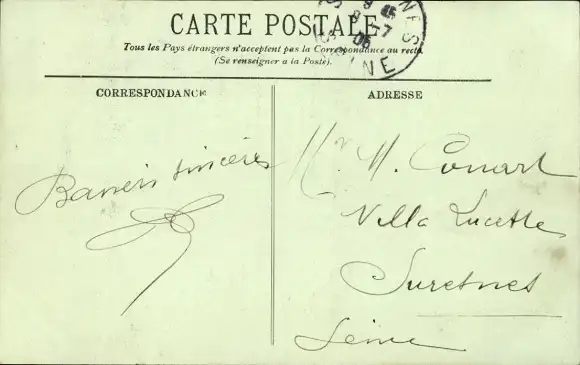 CARTE POSTALE
Tous les Pays étrangers n'acceptent pas la Correspondance au recto.
(Se renseigner a la Poste).
CORRESPONDANCE
ADRESSE
Baisers sincères
Mr. M. Conart
Villa Lucette
Suresnes
Seine
NES
SEINE
8 -7
05